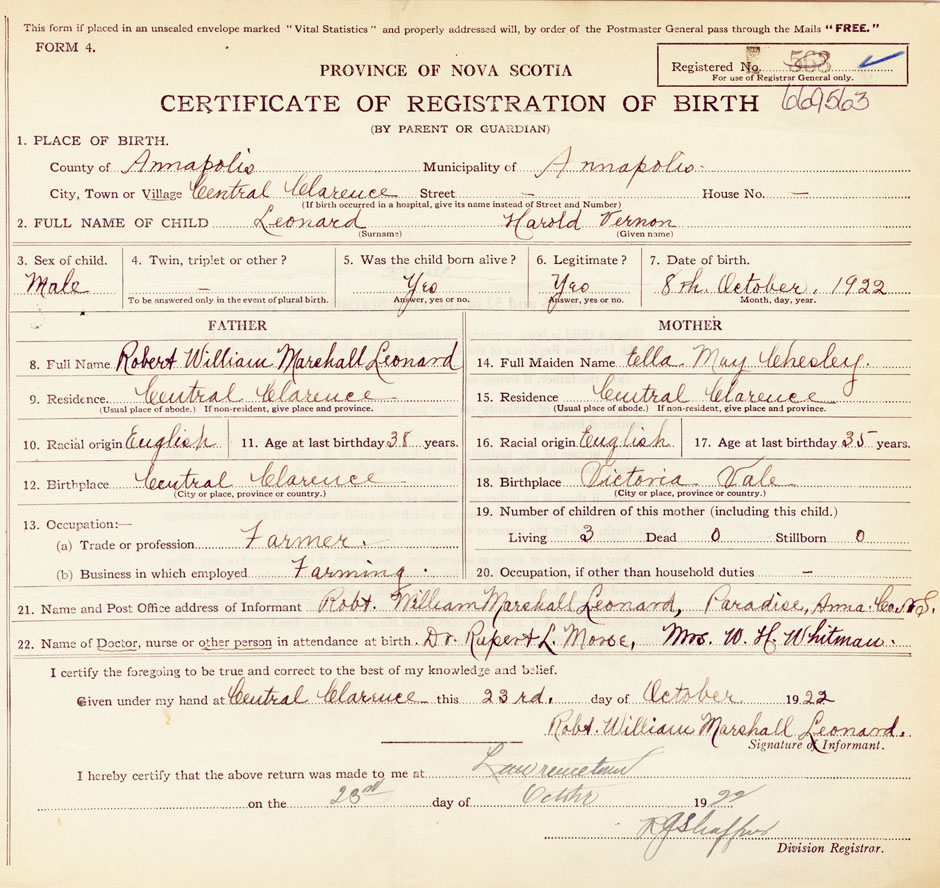 This form if placed in an unsealed envelope marked "Vital Statistics" and properly addressed will, by order of the Postmaster General pass through the Mails "FREE."
FORM 4.
Registered No. 563
For use of Registrar General only.
PROVINCE OF NOVA SCOTIA
CERTIFICATE OF REGISTRATION OF BIRTH 669563
(BY PARENT OR GUARDIAN)
1. PLACE OF BIRTH.
County of Annapolis Municipality of Annapolis.
City, Town or Village Central Clarence Street — House No. —
(If birth occurred in a hospital, give its name instead of Street and Number)
2. FULL NAME OF CHILD Leonard Harold Vernon
(Surname) (Given name)
3. Sex of child. 4. Twin, triplet or other? 5. Was the child born alive? 6. Legitimate? 7. Date of birth.
Male — Yes Yes 8th. October, 1922
To be answered only in the event of plural birth. Answer, yes or no. Answer, yes or no. Month, day, year.
FATHER MOTHER
8. Full Name Robert William Marshall Leonard 14. Full Maiden Name Ella May Chesley.
9. Residence. Central Clarence 15. Residence Central Clarence
(Usual place of abode.) If non-resident, give place and province. (Usual place of abode.) If non-resident, give place and province.
10. Racial origin English 11. Age at last birthday 38 years. 16. Racial origin English 17. Age at last birthday 35 years.
12. Birthplace Central Clarence 18. Birthplace Victoria Vale
(City or place, province or country.) (City or place, province or country.)
13. Occupation:— 19. Number of children of this mother (including this child.)
(a) Trade or profession Farmer. Living 3 Dead 0 Stillborn 0
(b) Business in which employed Farming. 20. Occupation, if other than household duties —
21. Name and Post Office address of Informant Robt. William Marshall Leonard, Paradise, Anna. Co. N.S.
22. Name of Doctor, nurse or other person in attendance at birth. Dr. Rupert L. Morse, Mrs. W. H. Whitman.
I certify the foregoing to be true and correct to the best of my knowledge and belief.
Given under my hand at Central Clarence this 23rd. day of October 1922
Robt. William Marshall Leonard.
Signature of Informant.
I hereby certify that the above return was made to me at Lawrencetown
on the 23rd day of October 1922
Division Registrar.